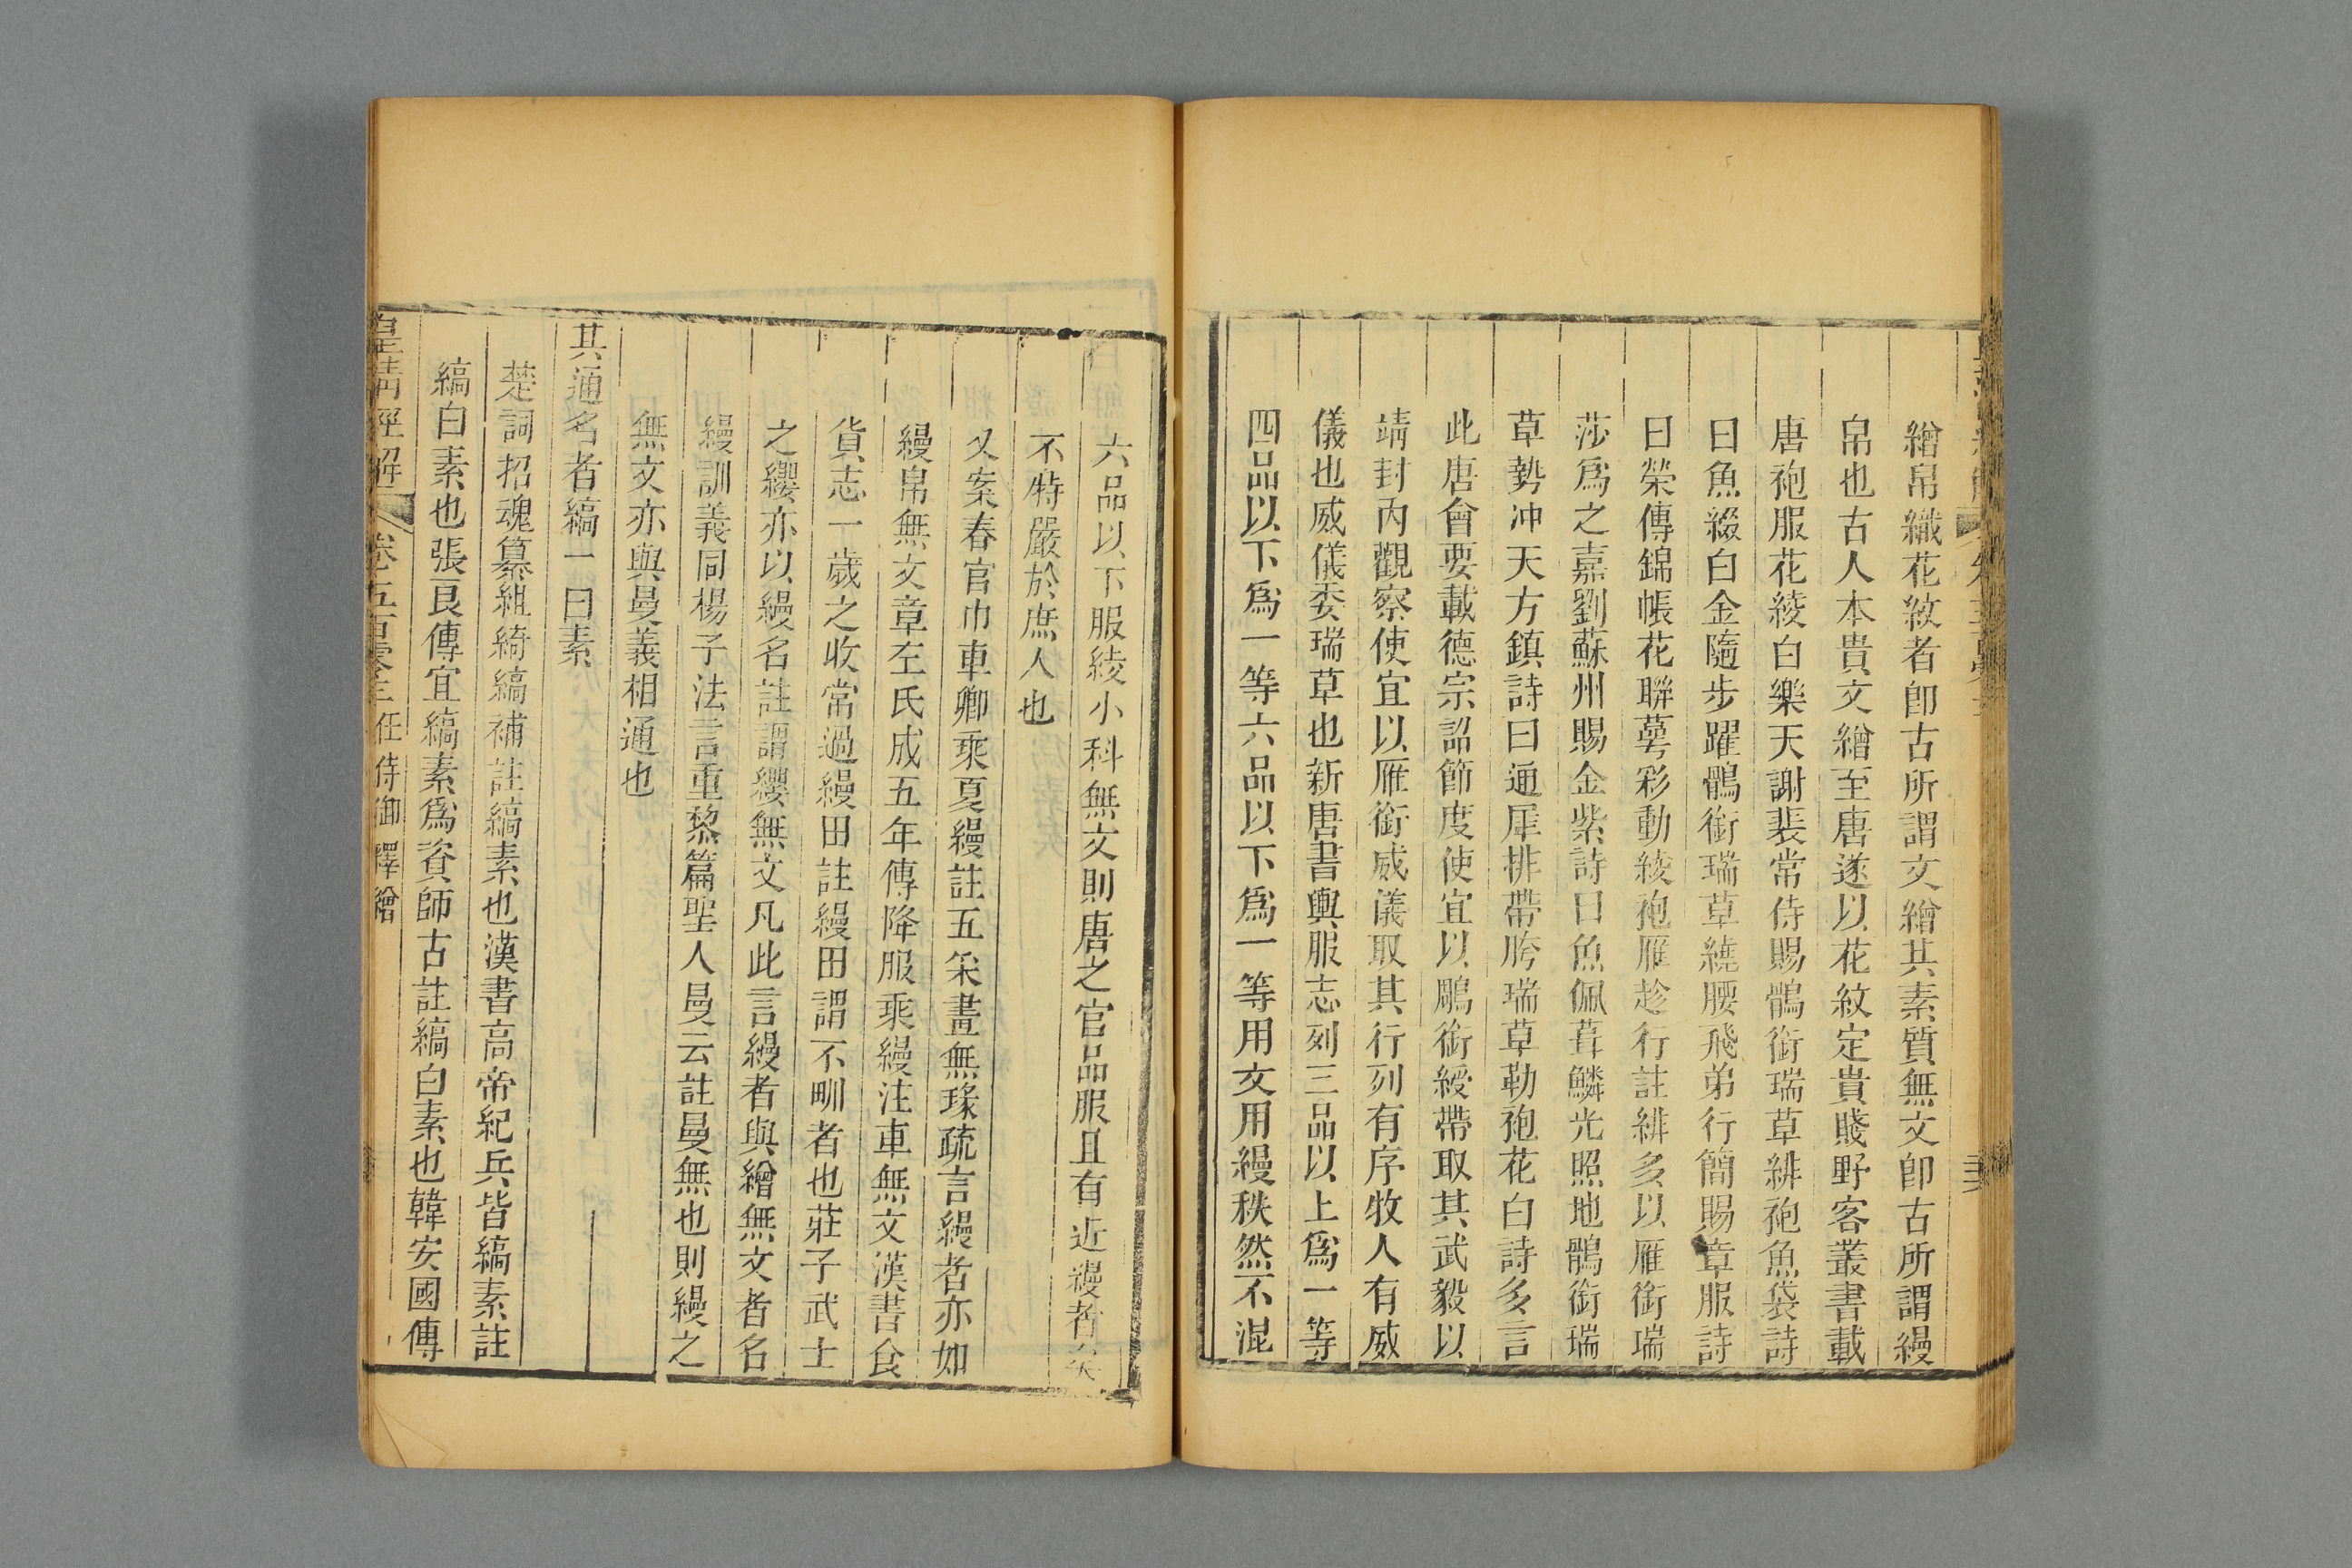 繒帛織花紋者卽古所謂文繒其素質無文卽古所謂縵
帛也古人本貴文繒至唐遂以花紋定貴賤野客叢書載
唐袍服花綾白樂天謝裴常侍賜鶻銜瑞草緋袍魚袋詩
曰魚綴白金隨步躍鶻銜瑞草繞腰飛弟行簡賜章服詩
曰榮傳錦帳花聯萼彩動綾袍雁趁行註緋多以雁銜瑞
莎爲之嘉劉蘇州賜金紫詩曰魚佩葺鱗光照地鶻銜瑞
草勢冲天方鎮詩曰通犀排帶胯瑞草勒袍花白詩多言
此唐會要載德宗詔節度使宜以鵰銜綬帶取其武毅以
靖封內觀察使宜以雁銜威儀取其行列有序牧人有威
儀也威儀委瑞草也新唐書輿服志列三品以上爲一等
四品以下爲一等六品以下爲一等用文用縵秩然不混
六品以下服綾小科無文則唐之官品服且有近縵者矣
不特嚴於庶人也
又案春官巾車卿乘夏縵註五采畫無瑑疏言縵者亦如
縵帛無文章左氏成五年傳降服乘縵注車無文漢書食
貨志一歲之收常過縵田註縵田謂不甽者也莊子武士
之纓亦以縵名註謂纓無文凡此言縵者與繒無文者名
縵訓義同楊子法言重黎篇聖人曼云註曼無也則縵之
無文亦與曼義相通也
其通名者縞一曰素
楚詞招魂纂組綺縞補註縞素也漢書高帝紀兵皆縞素註
縞白素也張良傳宜縞素爲資師古註縞白素也韓安國傳
皇淸經解 卷五百零三 任侍御釋繒